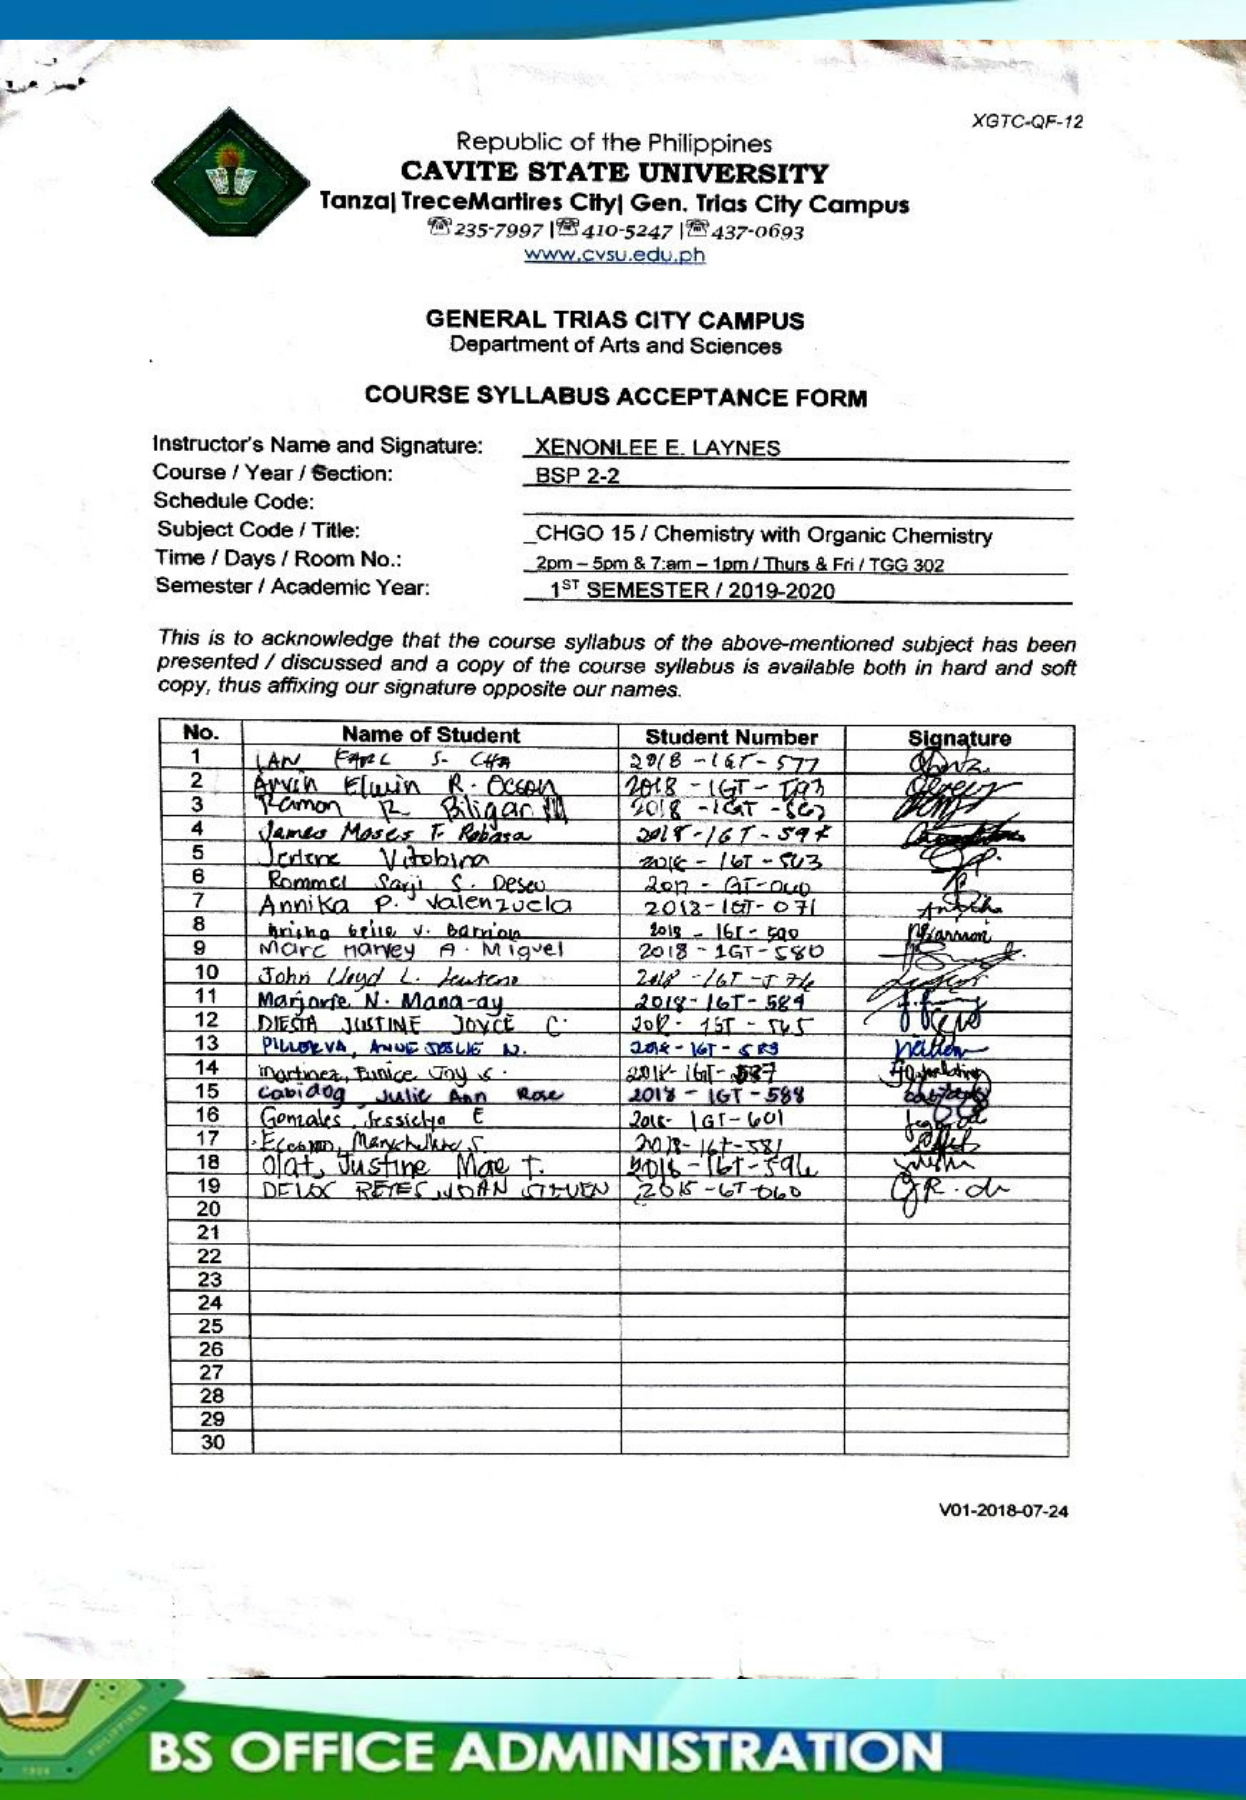 XGTC-QF-12
Republic of the Philippines
CAVITE STATE UNIVERSITY
Tanza| TreceMartires City| Gen. Trias City Campus
☏235-7997 |☏410-5247 |☏437-0693
www.cvsu.edu.ph
GENERAL TRIAS CITY CAMPUS
Department of Arts and Sciences
COURSE SYLLABUS ACCEPTANCE FORM
Instructor's Name and Signature: XENONLEE E. LAYNES
Course / Year / Section: BSP 2-2
Schedule Code:
Subject Code / Title: CHGO 15 / Chemistry with Organic Chemistry
Time / Days / Room No.: 2pm – 5pm & 7:am – 1pm / Thurs & Fri / TGG 302
Semester / Academic Year: 1ST SEMESTER / 2019-2020
This is to acknowledge that the course syllabus of the above-mentioned subject has been
presented / discussed and a copy of the course syllabus is available both in hard and soft
copy, thus affixing our signature opposite our names.
No. Name of Student Student Number Signature
1 IAN EARL S. 2018-1GT-577
2 Arvin Elwin R. 2018-1GT-
3 Ramon R. Biligan III 2018-1GT-
4 James Moses F. Robasa 2018-1GT-
5 Vitobina 2018-1GT-563
6 Rommel S.
7 Annika P. Valenzuela 2018-1GT-071
8 V. Barrion 2018-1GT-590
9 Marc Harvey A. Miguel 2018-1GT-580
10 John Lloyd L. 2018-1GT-
11 Marjorie N. Mana-ay 2018-1GT-584
12 DIESTA JUSTINE JOYCE C.
13 2018-1GT-
14 Martinez, Eunice Joy S. 2018-1GT-
15 Cabidog, Julie Ann Rose 2018-1GT-588
16 Gonzales, E 2018-1GT-601
17 2018-1GT-581
18 Olat, Justine Mae T. 2018-1GT-
19 DELOS REYES,
20
21
22
23
24
25
26
27
28
29
30
V01-2018-07-24
BS OFFICE ADMINISTRATION